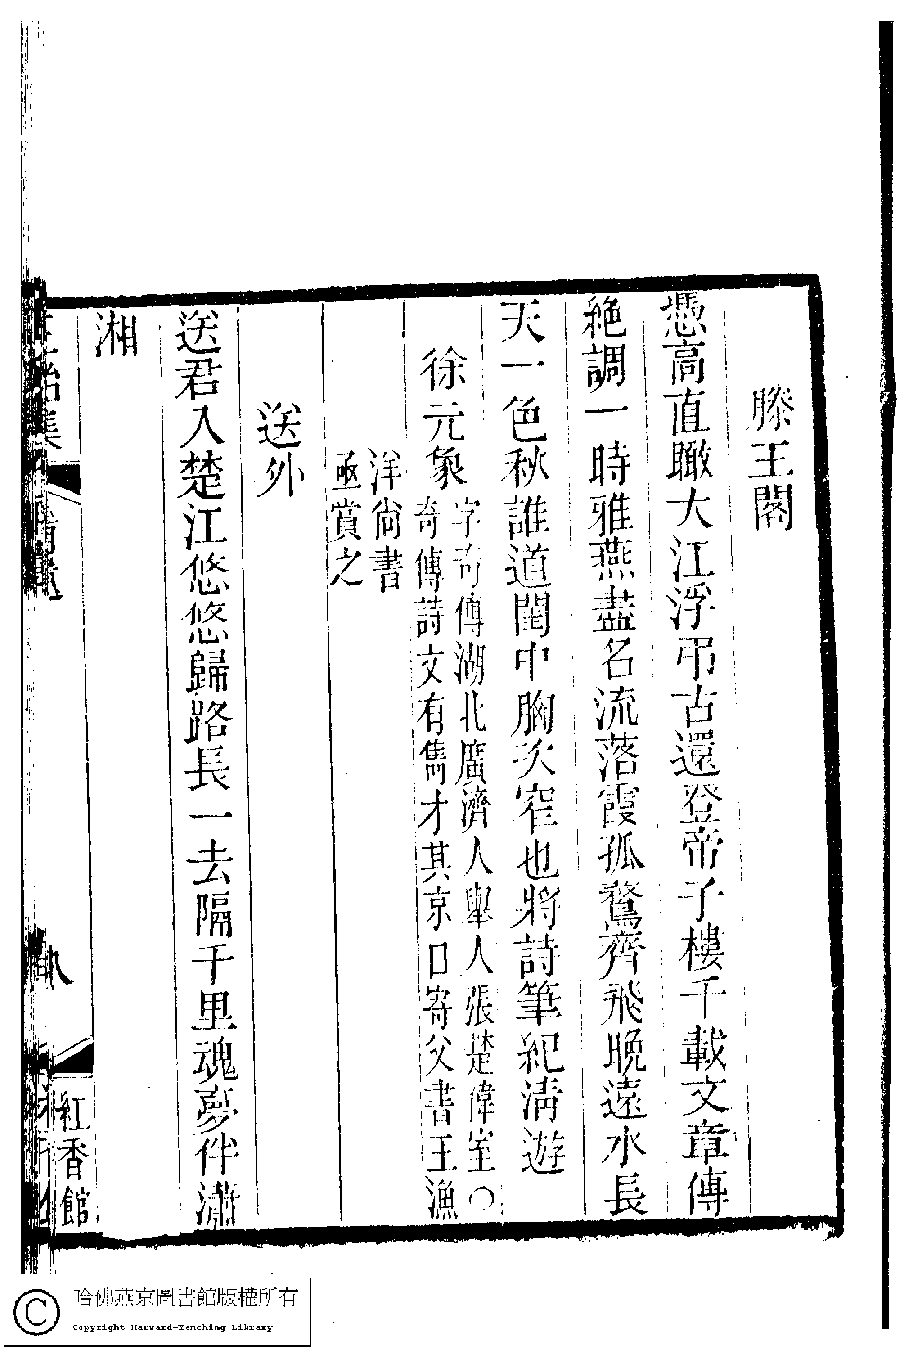 滕王閣
憑高直瞰大江浮弔古還登帝子樓千載文章傳
絕調一時雅燕盡名流落霞孤鶩齊飛晚遠水長
天一色秋誰道閨中胸次窄也將詩筆紀清遊
徐元象
字奇傳湖北廣濟人舉人張楚偉室〇
奇傳詩文有雋才其京口寄父書王漁
洋尚書
亟賞之
送外
送君入楚江悠悠歸路長一去隔千里魂夢伴瀟
湘
紅香館
哈佛燕京圖書館版權所有
Copyright Harvard-Yenching Library